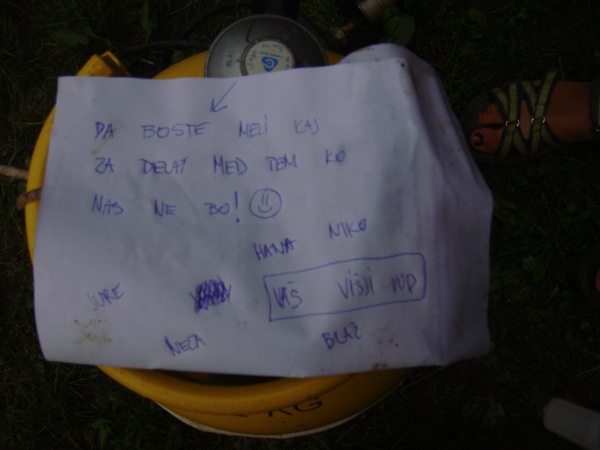 DA BOSTE MELI KAJ
ZA DELAT MED TEM KO
NAS NE BO!
HANA NIKO
JURE
VAŠ VIŠJI VOD
NEŽA BLAŽ
KG